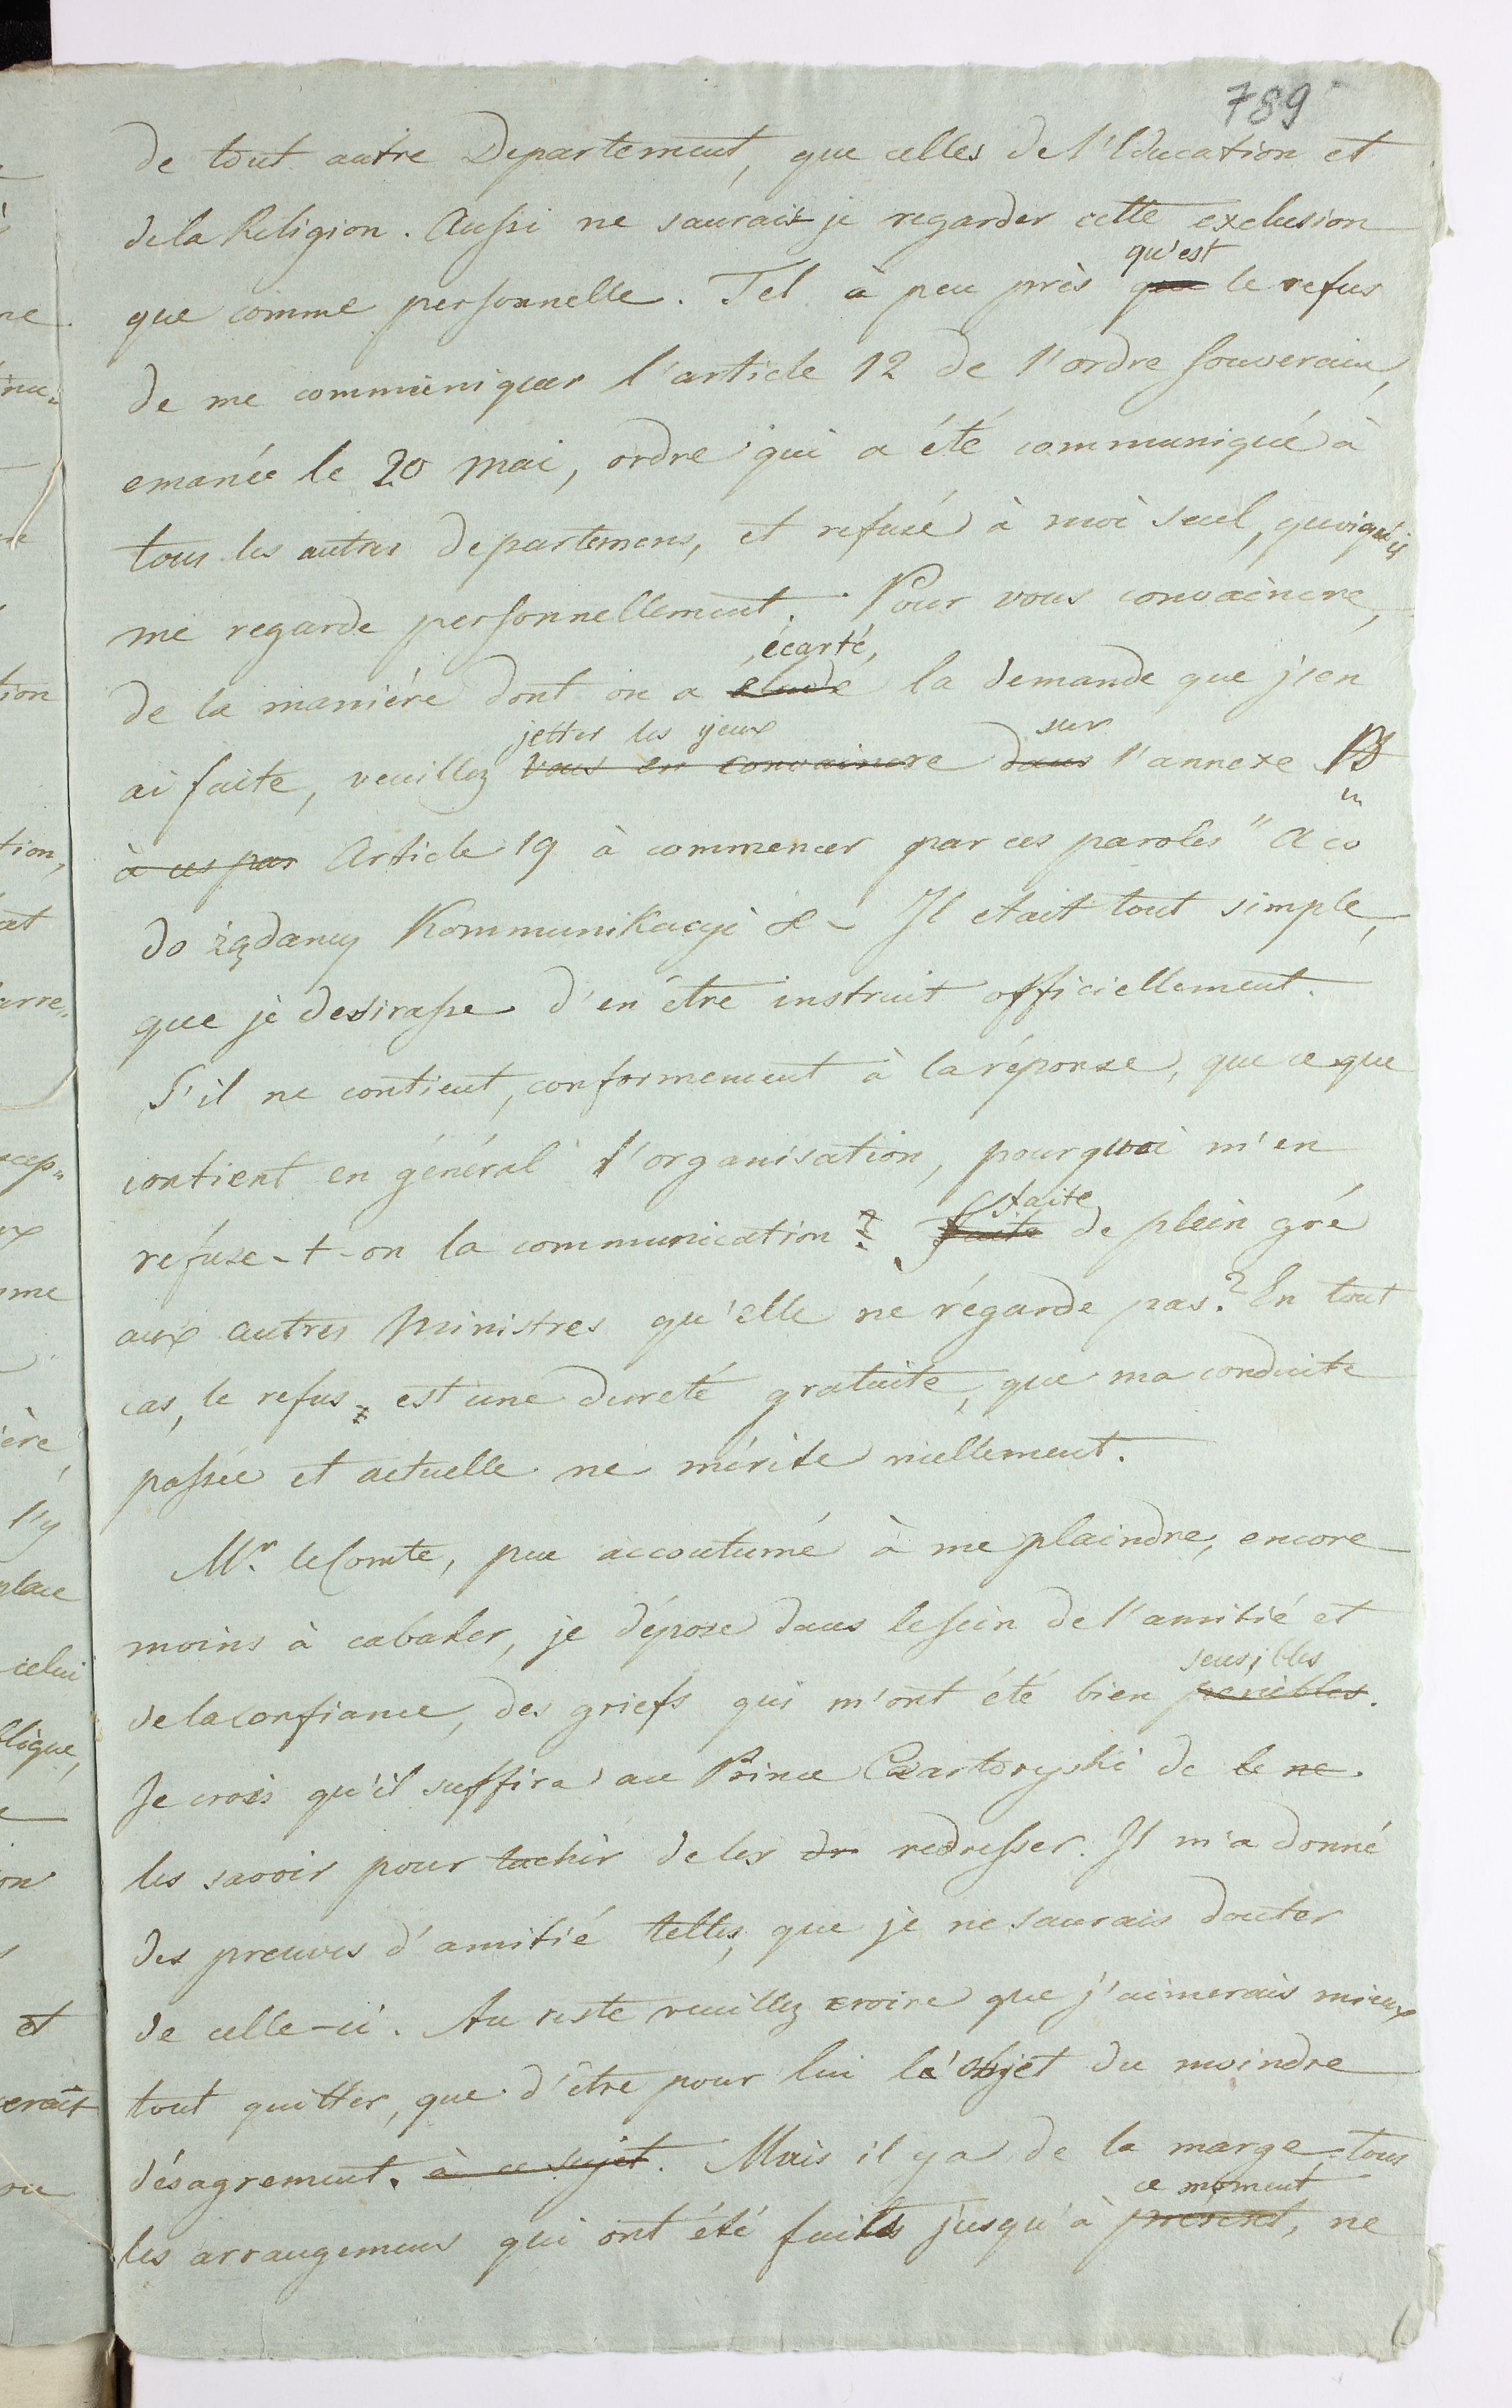 789
de tout autre Departement, que celles de l'Education et
de la Religion. Aussi ne saurais je regarder cette exclusion
qu'est
que comme personnelle. Tel à peu près que le refus
de me communiquer l'article 12 de l'ordre souverain,
emanée le 20 mai, ordre qui a été communiqué à
tous les autres departemens, et refusé à moi seul, quoiqu'il
me regarde personnellement. Pour vous convaincre,
écarté,
de la maniére dont on a éludé la demande que j'en
jetter les yeux sur
ai faite, veuillez vous en convaincre dans l'annexe B
à ces par Article 19 à commencer par ces paroles "A co
do żądaney Kommunikacyi & - Il etait tout simple,
que je desirasse d'en être instruit officiellement.
S'il ne contient, conformement à la réponse, que ce que
contient en général l'organisation, pourquoi m'en
faite
refuse-t-on la communication? faite de plein gré
aux autres Ministres qu'elle ne régarde pas? En tout
cas, le refus, est une dureté gratuite, que ma conduite
passée et actuelle ne mérite nullement.
Mr. le Comte, peu accoutumé à me plaindre, encore
moins à cabaler, je dépose dans le sein de l'amitié et
sensibles
de la confiance, des griefs qui m'ont été bien penibles.
Je crois qu'il suffira au Prince Czartoryski de le ne
les savoir pour tacher de les dr redresser. Il m'a donné
des preuves d'amitié telles, que je ne saurais douter
de celle-ci. Au reste veuillez croire que j'aimerais mieux
tout quitter, que d'être pour lui l'objet du moindre
désagrement. à ce sujet. Mais il y a de la marge, tous
ce moment
les arrangemens qui ont été faits jusqu'à présent, ne